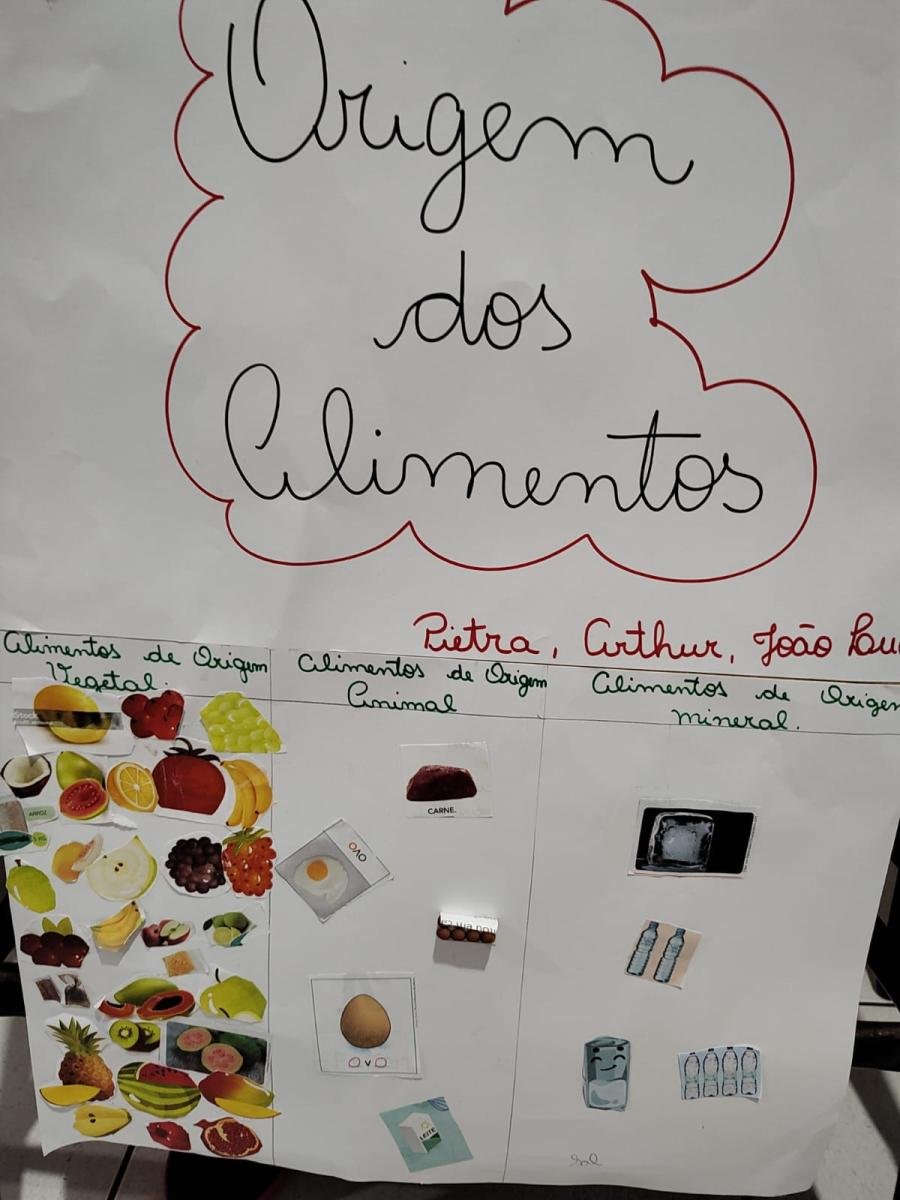 Origem
dos
Alimentos
Pietra, Arthur, João
Alimentos de Origem
Vegetal.
Alimentos de Origem
Animal
Alimentos de Origem
mineral.
iStock
ARROZ
CARNE.
OVO
OVO
LEITE
Sal